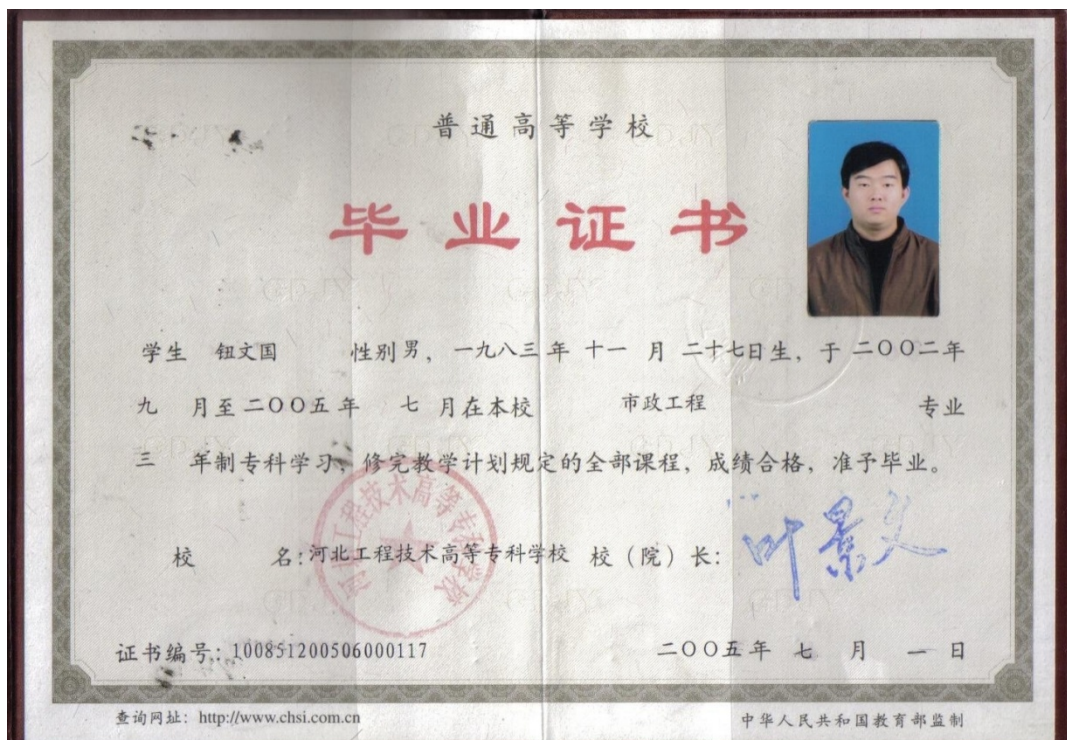 普通高等学校
毕业证书
学生 钮文国 性别男，一九八三年十一月二十七日生，于二〇〇二年
九月至二〇〇五年七月在本校 市政工程 专业
三年制专科学习，修完教学计划规定的全部课程，成绩合格，准予毕业。
校 名：河北工程技术高等专科学校 校（院）长：叶景文
河北工程技术高等专科学校
证书编号：100851200506000117 二〇〇五年七月一日
查询网址：http://www.chsi.com.cn 中华人民共和国教育部监制